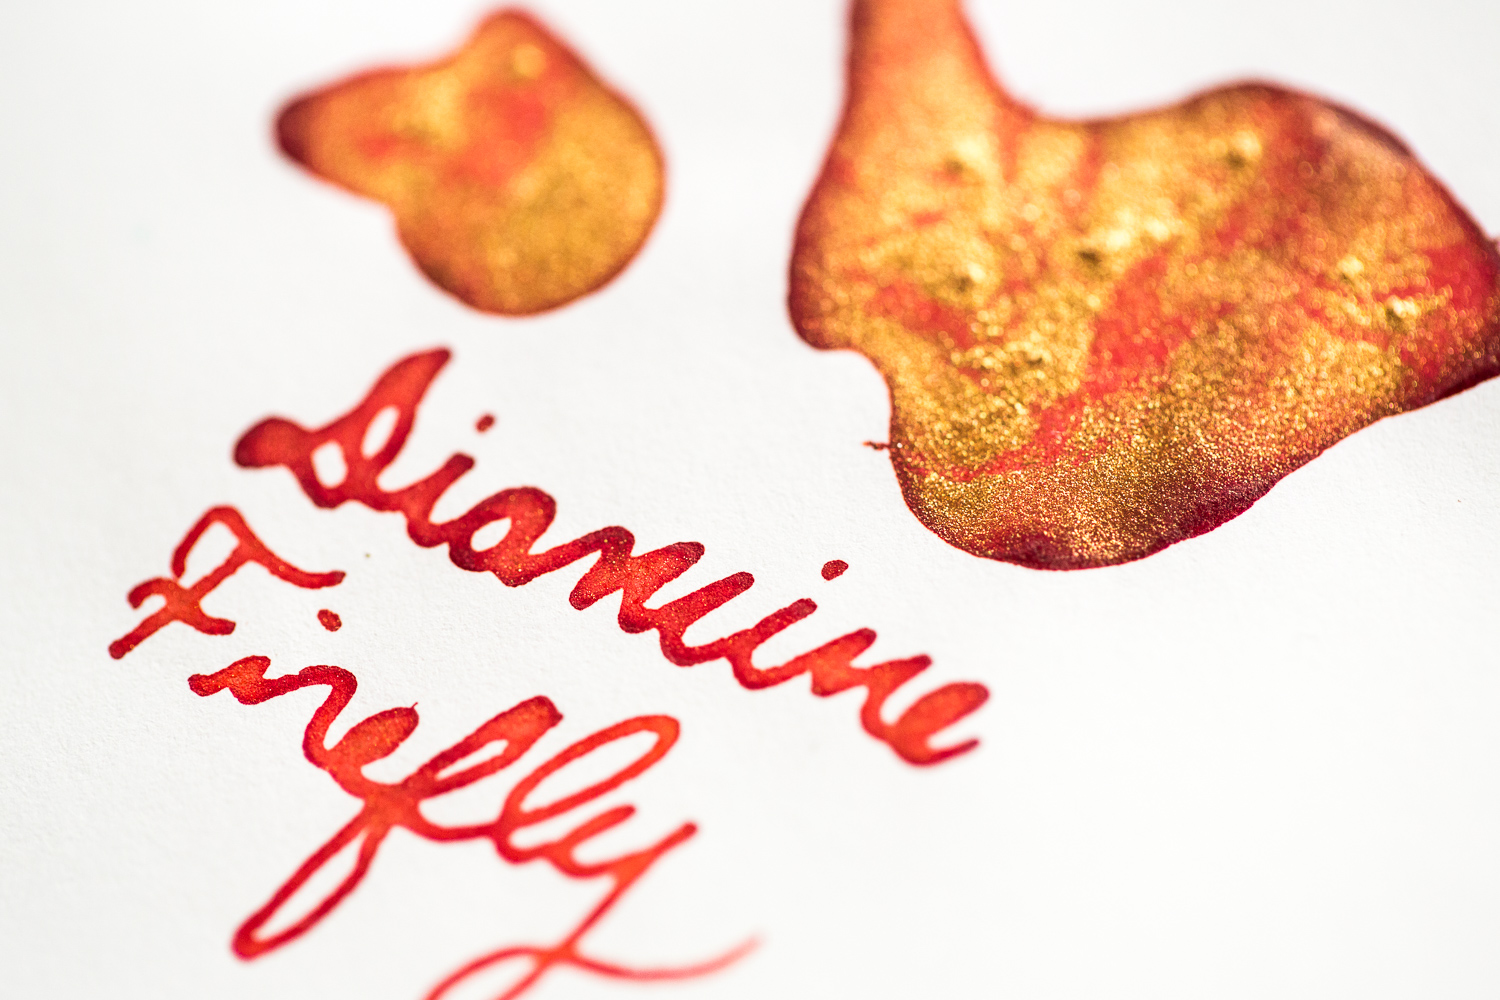 Diamine
Firefly